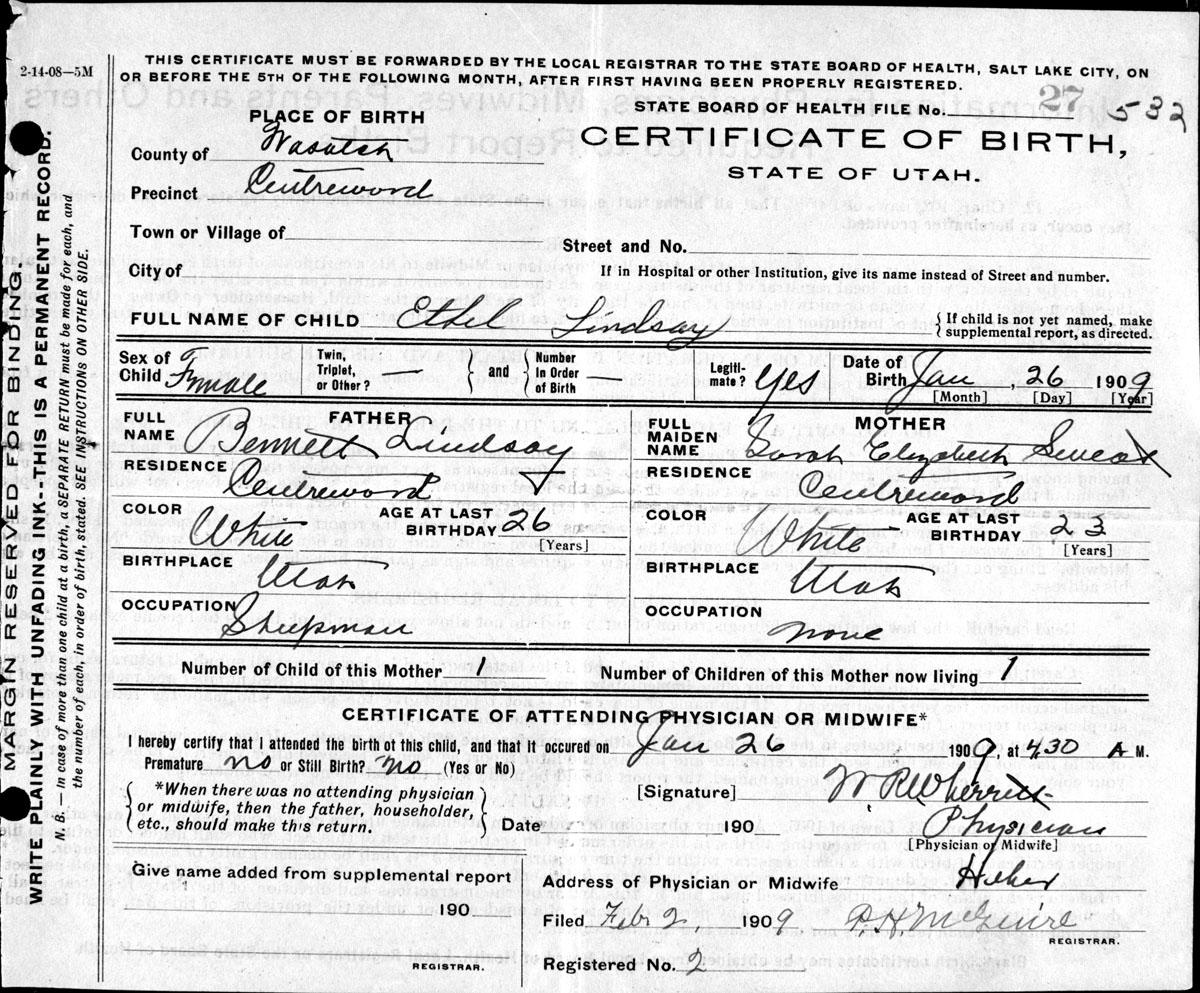 2-14-08—5M
THIS CERTIFICATE MUST BE FORWARDED BY THE LOCAL REGISTRAR TO THE STATE BOARD OF HEALTH, SALT LAKE CITY, ON
OR BEFORE THE 5TH OF THE FOLLOWING MONTH, AFTER FIRST HAVING BEEN PROPERLY REGISTERED.
STATE BOARD OF HEALTH FILE No. 27 532
PLACE OF BIRTH
CERTIFICATE OF BIRTH,
STATE OF UTAH.
County of Wasatch
Precinct Centrewood
Town or Village of
Street and No.
City of
If in Hospital or other Institution, give its name instead of Street and number.
FULL NAME OF CHILD Ethel Lindsay
{ If child is not yet named, make
supplemental report, as directed.
Sex of Child Female
Twin, Triplet, or Other? — } and { Number In Order of Birth —
Legiti- mate? Yes
Date of Birth Jan 26 1909
[Month] [Day] [Year]
FATHER
FULL NAME Bennett Lindsay
RESIDENCE Centrewood
COLOR White AGE AT LAST BIRTHDAY 26
[Years]
BIRTHPLACE Utah
OCCUPATION Sheepman
MOTHER
FULL MAIDEN NAME Sarah Elizabeth
RESIDENCE Centrewood
COLOR White AGE AT LAST BIRTHDAY 23
[Years]
BIRTHPLACE Utah
OCCUPATION none
Number of Child of this Mother 1 Number of Children of this Mother now living 1
CERTIFICATE OF ATTENDING PHYSICIAN OR MIDWIFE*
I hereby certify that I attended the birth ot this child, and that it occured on Jan 26 1909, at 430 A M.
Premature no or Still Birth? no (Yes or No)
{ *When there was no attending physician
or midwife, then the father, householder,
etc., should make this return. }
[Signature] W R Wherritt
Date 190 Physician
[Physician or Midwife]
Give name added from supplemental report
190
REGISTRAR.
Address of Physician or Midwife Heber
Filed Feb 2, 1909 P. H. McGuire
REGISTRAR.
Registered No. 2
MARGIN RESERVED FOR BINDING.
WRITE PLAINLY WITH UNFADING INK-THIS IS A PERMENENT RECORD.
N. B. — In case of more than one child at a birth, a SEPARATE RETURN must be made for each, and
the number of each, in order of birth, stated. SEE INSTRUCTIONS ON OTHER SIDE.